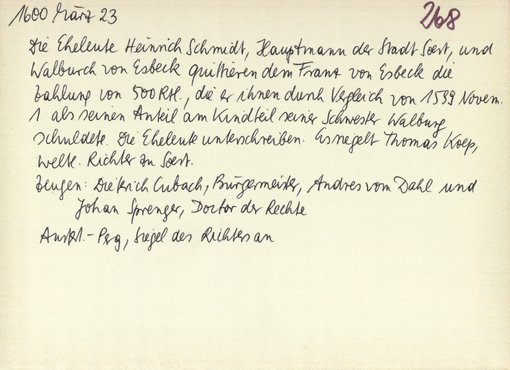 1600 März 23
268
Die Eheleute Heinrich Schmidt, Hauptmann der Stadt Soest, und
Walburch von Esbeck quittieren dem Franz von Esbeck die
Zahlung von 500 Rtl., die er ihnen durch Vergleich von 1599 Novem.
1 als seinen Anteil am Kindteil seiner Schwester Walburg
schuldete. Die Eheleute unterschreiben. Es siegelt Thomas Koep,
weltl. Richter zu Soest.
Zeugen: Dietrich Cubach, Bürgermeister, Andres vom Dahl und
Johan Sprenger, Doctor der Rechte
Ausf.-Perg, Siegel des Richters an